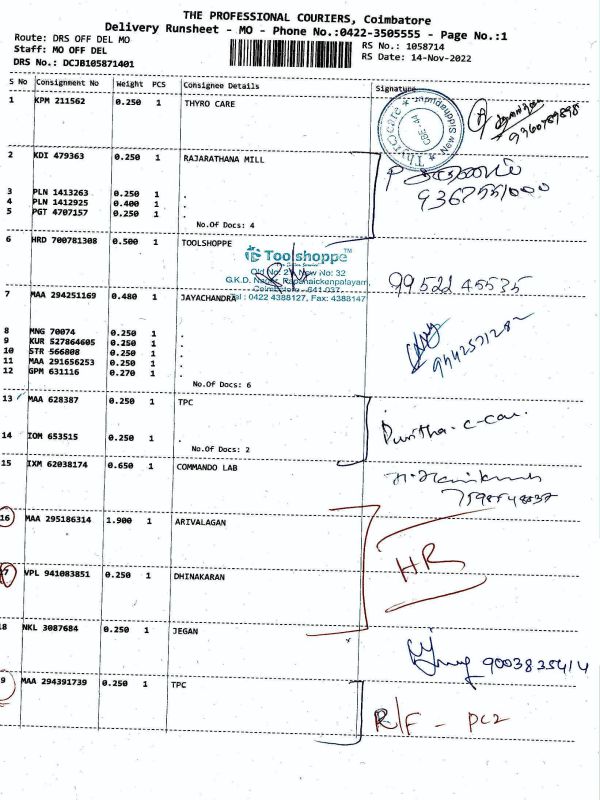 THE PROFESSIONAL COURIERS, Coimbatore
Delivery Runsheet - MO - Phone No.:0422-3505555 - Page No.:1
Route: DRS OFF DEL MO
RS No.: 1058714
Staff: MO OFF DEL
RS Date: 14-Nov-2022
DRS No.: DCJB105871401
S No Consignment No Weight PCS Consignee Details Signature
1 KPM 211562 0.250 1 THYRO CARE
Thyrocare * New Siddhapudur *
CBE-44
9360789898
2 KDI 479363 0.250 1 RAJARATHANA MILL
9367551000
3 PLN 1413263 0.250 1 .
4 PLN 1412925 0.400 1 .
5 PGT 4707157 0.250 1 .
No.Of Docs: 4
6 HRD 700781308 0.500 1 TOOLSHOPPE
Toolshoppe™
Old No: 27, New No: 32
G.K.D. Nagar, Papanaickenpalayam,
Coimbatore - 641 037
Tel : 0422 4388127, Fax: 4388147
99522 45535
7 MAA 294251169 0.480 1 JAYACHANDRA
9442571282
8 MNG 70074 0.250 1 .
9 KUR 527864605 0.250 1 .
10 STR 566808 0.250 1 .
11 MAA 291656253 0.250 1 .
12 GPM 631116 0.270 1 .
No.Of Docs: 6
13 MAA 628387 0.250 1 TPC
14 IOM 653515 0.250 1 .
No.Of Docs: 2
15 IXM 62038174 0.650 1 COMMANDO LAB
16 MAA 295186314 1.900 1 ARIVALAGAN
HR
17 VPL 941083851 0.250 1 DHINAKARAN
18 NKL 3087684 0.250 1 JEGAN
9003835414
19 MAA 294391739 0.250 1 TPC
R/F - PC2